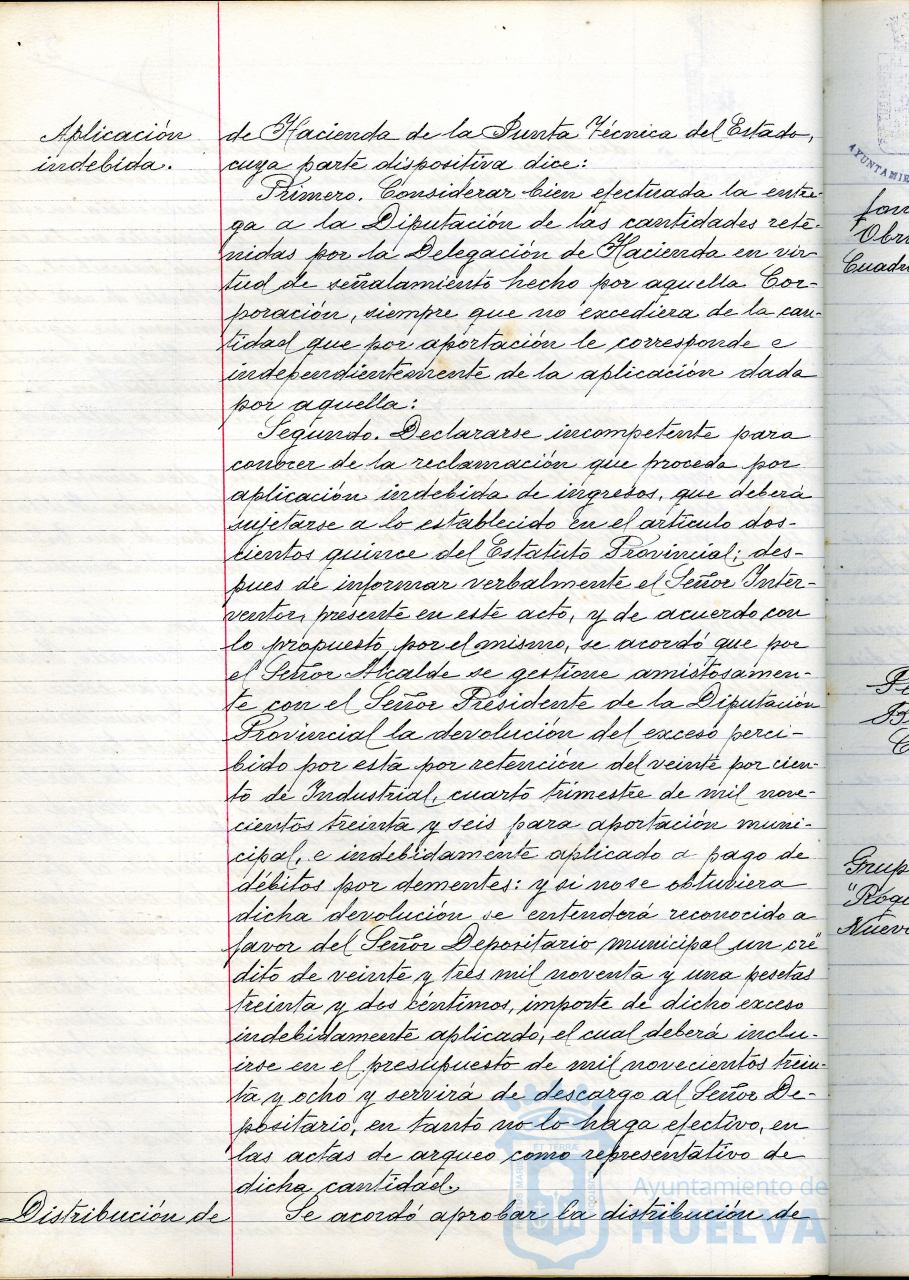 Aplicación
indebida.
de Hacienda de la Junta Técnica del Estado,
cuya parte dispositiva dice:
Primero. Considerar bien efectuada la entre-
ga a la Diputación de las cantidades rete-
nidas por la Delegación de Hacienda en vir-
tud de señalamiento hecho por aquella Cor-
poración, siempre que no excediera de la can-
tidad que por aportación le corresponde e
independientemente de la aplicación dada
por aquella:
Segundo. Declararse incompetente para
conocer de la reclamación que proceda por
aplicación indebida de ingresos, que deberá
sujetarse a lo establecido en el artículo dos-
cientos quince del Estatuto Provincial; des-
pues de informar verbalmente el Señor Inter-
ventor, presente en este acto, y de acuerdo con
lo propuesto por el mismo, se acordó que por
el Señor Alcalde se gestione amistosamen-
te con el Señor Presidente de la Diputación
Provincial la devolución del exceso perci-
bido por esta por retención del veinte por cien-
to de Industrial, cuarto trimestre de mil nove-
cientos treinta y seis para aportación muni-
cipal, e indebidamente aplicado a pago de
débitos por dementes: y si no se obtuviera
dicha devolución se entenderá reconocido a
favor del Señor Depositario municipal un cré-
dito de veinte y tres mil noventa y una pesetas
treinta y dos céntimos, importe de dicho exceso
indebidamente aplicado, el cual deberá inclu-
irse en el presupuesto de mil novecientos trein-
ta y ocho y servirá de descargo al Señor De-
positario, en tanto no lo haga efectivo, en
las actas de arqueo como representativo de
dicha cantidad.
Distribución de
Se acordó aprobar la distribución de
Ayuntamiento de
HUELVA